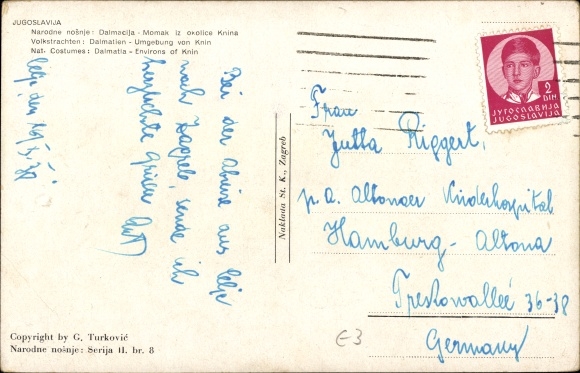 JUGOSLAVIJA
Narodne nošnje: Dalmacija - Momak iz okolice Knina
Volkstrachten: Dalmatien - Umgebung von Knin
Nat- Costumes: Dalmatia - Environs of Knin
Bei der Abreise aus Celje
nach Zagreb, sende ich
herzlichste Grüße
Celje, den
Naklada St. K., Zagreb
2
DIN
ЈУГОСЛАВИЈА
JUGOSLAVIJA
Frau
Jutta Riggert,
p.a. Altonaer Kinderhospital
Hamburg - Altona
36-38
Germany
€3
Copyright by G. Turković
Narodne nošnje: Serija II. br. 8